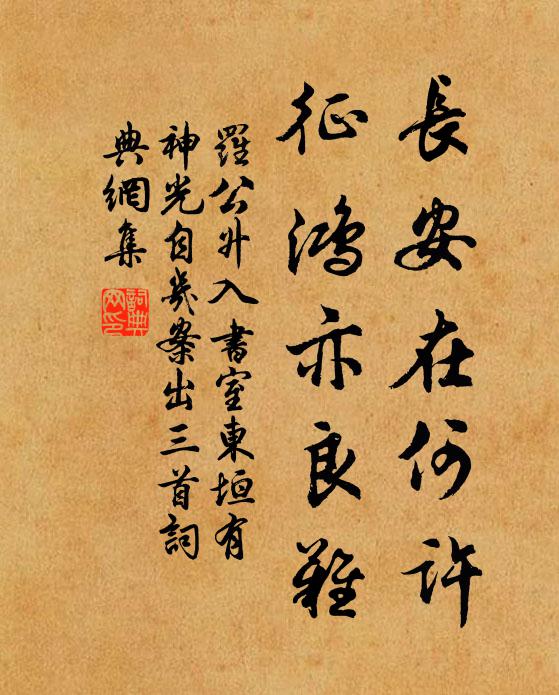 長安在何許
征鴻亦良難
羅公升入書室東垣有
神光自幾案出三首詞
典網集
詞典
网印